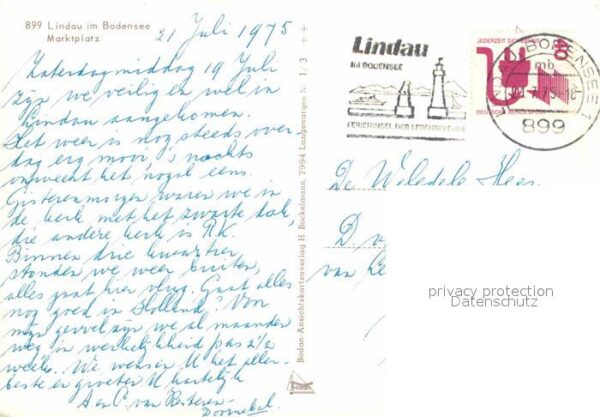 899 Lindau im Bodensee
Marktplatz
21 Juli 1975
Zaterdagmiddag 19 Juli
zijn we veilig en wel in
Lindau aangekomen.
Het weer is nog steeds over
dag erg mooi, 's nachts
onweert het nogal eens.
Gisterenmorgen waren we in
de kerk met het zwarte dak,
die andere kerk is R.K.
Binnen drie kwartier
stonden we weer buiten,
alles gaat hier vlug. Gaat alles
nog goed in Holland? Von
mijn gevoel zijn we al maanden
weg in werkelijkheid pas 2½
week. We wensen U het aller-
beste en groeten U hartelijk
A en C. van
Bodan-Ansichtskartenverlag H. Bockelmann, 7994 Langenargen Nr. 1/3 ++
bodan
Lindau
IM BODENSEE
FERIENINSEL DER LEBENSFREUDE
JEDERZEIT SICHERHEIT
80
DEUTSCHE BUNDESPOST
BODENSEE 1
mb
21.7.75
899
De Weledele Heer
D v
van
privacy protection
Datenschutz